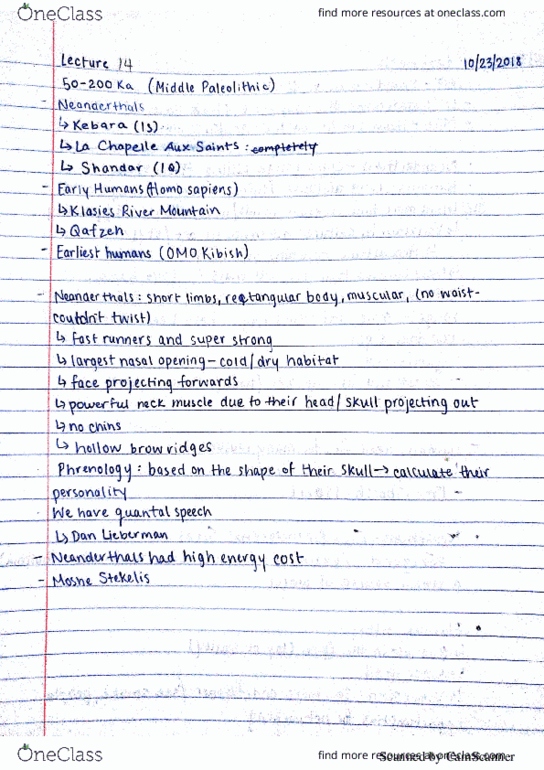 OneClass
find more resources at oneclass.com
Lecture 14 10/23/2018
50-200 Ka (Middle Paleolithic)
- Neanderthals
↳ Kebara (15)
↳ La Chapelle Aux Saints : completely
↳ Shandar (1Q)
- Early Humans (Homo sapiens)
↳ Klasies River Mountain
↳ Qafzeh
- Earliest humans (OMO Kibish)
- Neanderthals : short limbs, rectangular body, muscular, (no waist-
couldn't twist)
↳ fast runners and super strong
↳ largest nasal opening – cold/dry habitat
↳ face projecting forwards
↳ powerful neck muscle due to their head/skull projecting out
↳ no chins
↳ hollow brow ridges
· Phrenology : based on the shape of their skull → calculate their
personality
· We have quantal speech
↳ Dan Lieberman
- Neanderthals had high energy cost
- Moshe Stekelis
OneClass
find more resources at oneclass.com
Scanned by CamScanner